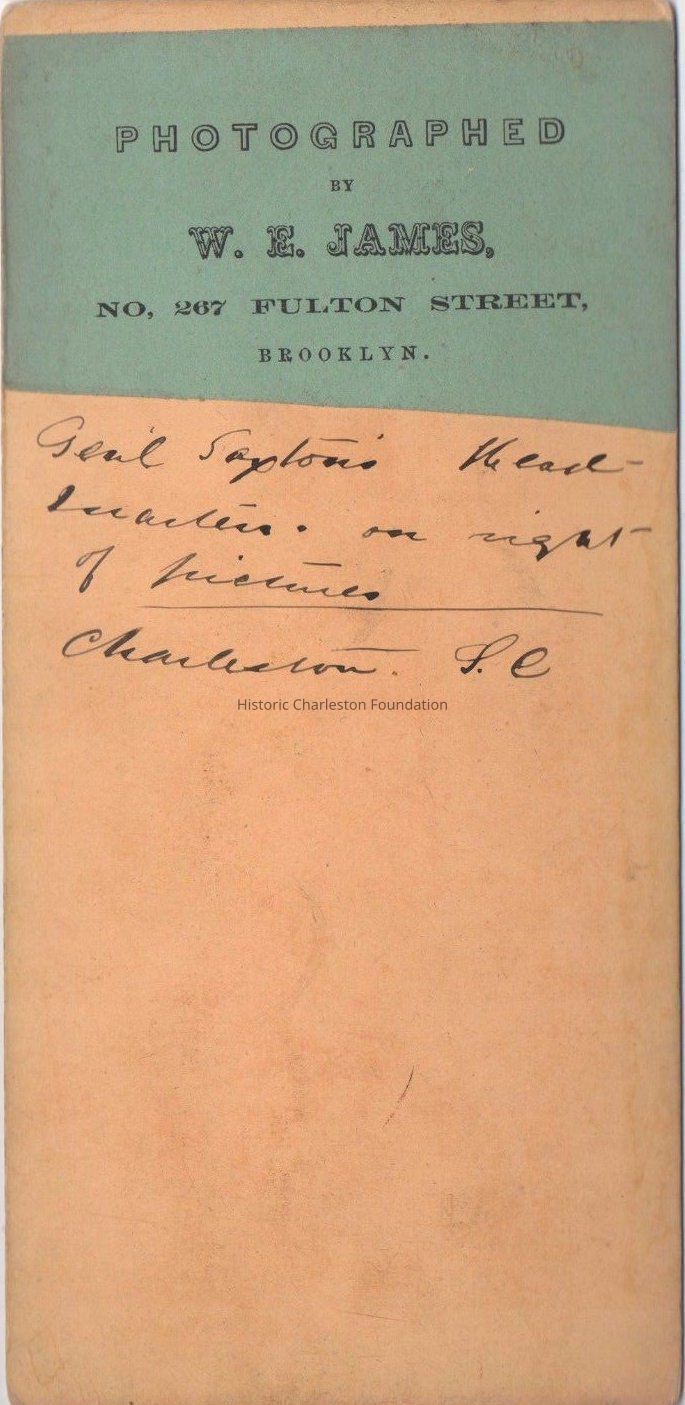 PHOTOGRAPHED
BY
W. E. JAMES,
NO, 267 FULTON STREET,
BROOKLYN.
Gen'l Saxton's Head-
Quarters. on right
of pictures
Charleston. S. C
Historic Charleston Foundation